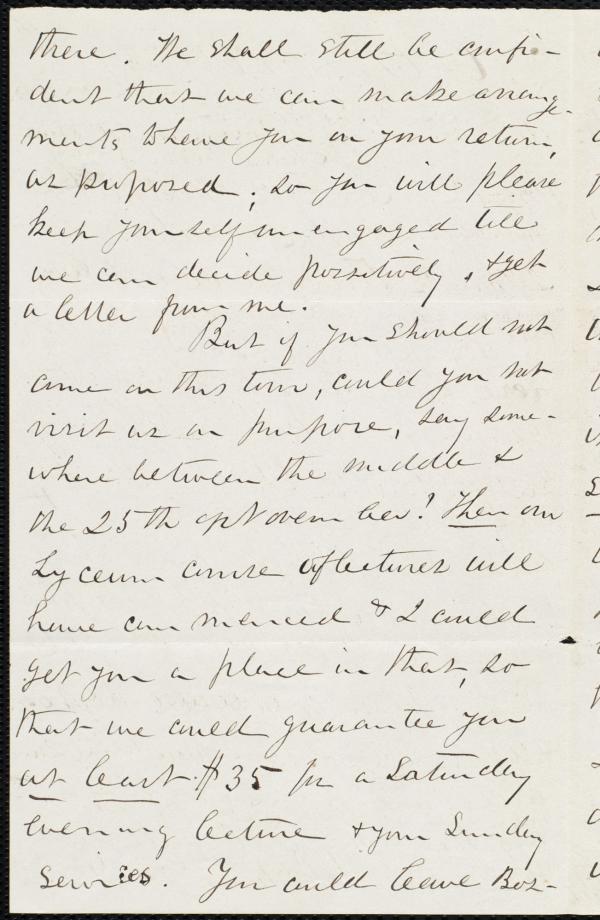 there. We shall still be confi-
dent that we can make arrange-
ments to have you on your return,
as proposed; so you will please
keep yourself unengaged till
we can decide possitively, & get
a letter from me.
But if you should not
come on this tour, could you not
visit us on purpose, say some-
where between the middle &
the 25th of November! Then our
Lyceum course of lectures will
have commenced & I could
get you a place in that, so
that we could guarantee you
at least $35 for a Saturday
evening lecture & your Sunday
services. You could leave Bos-